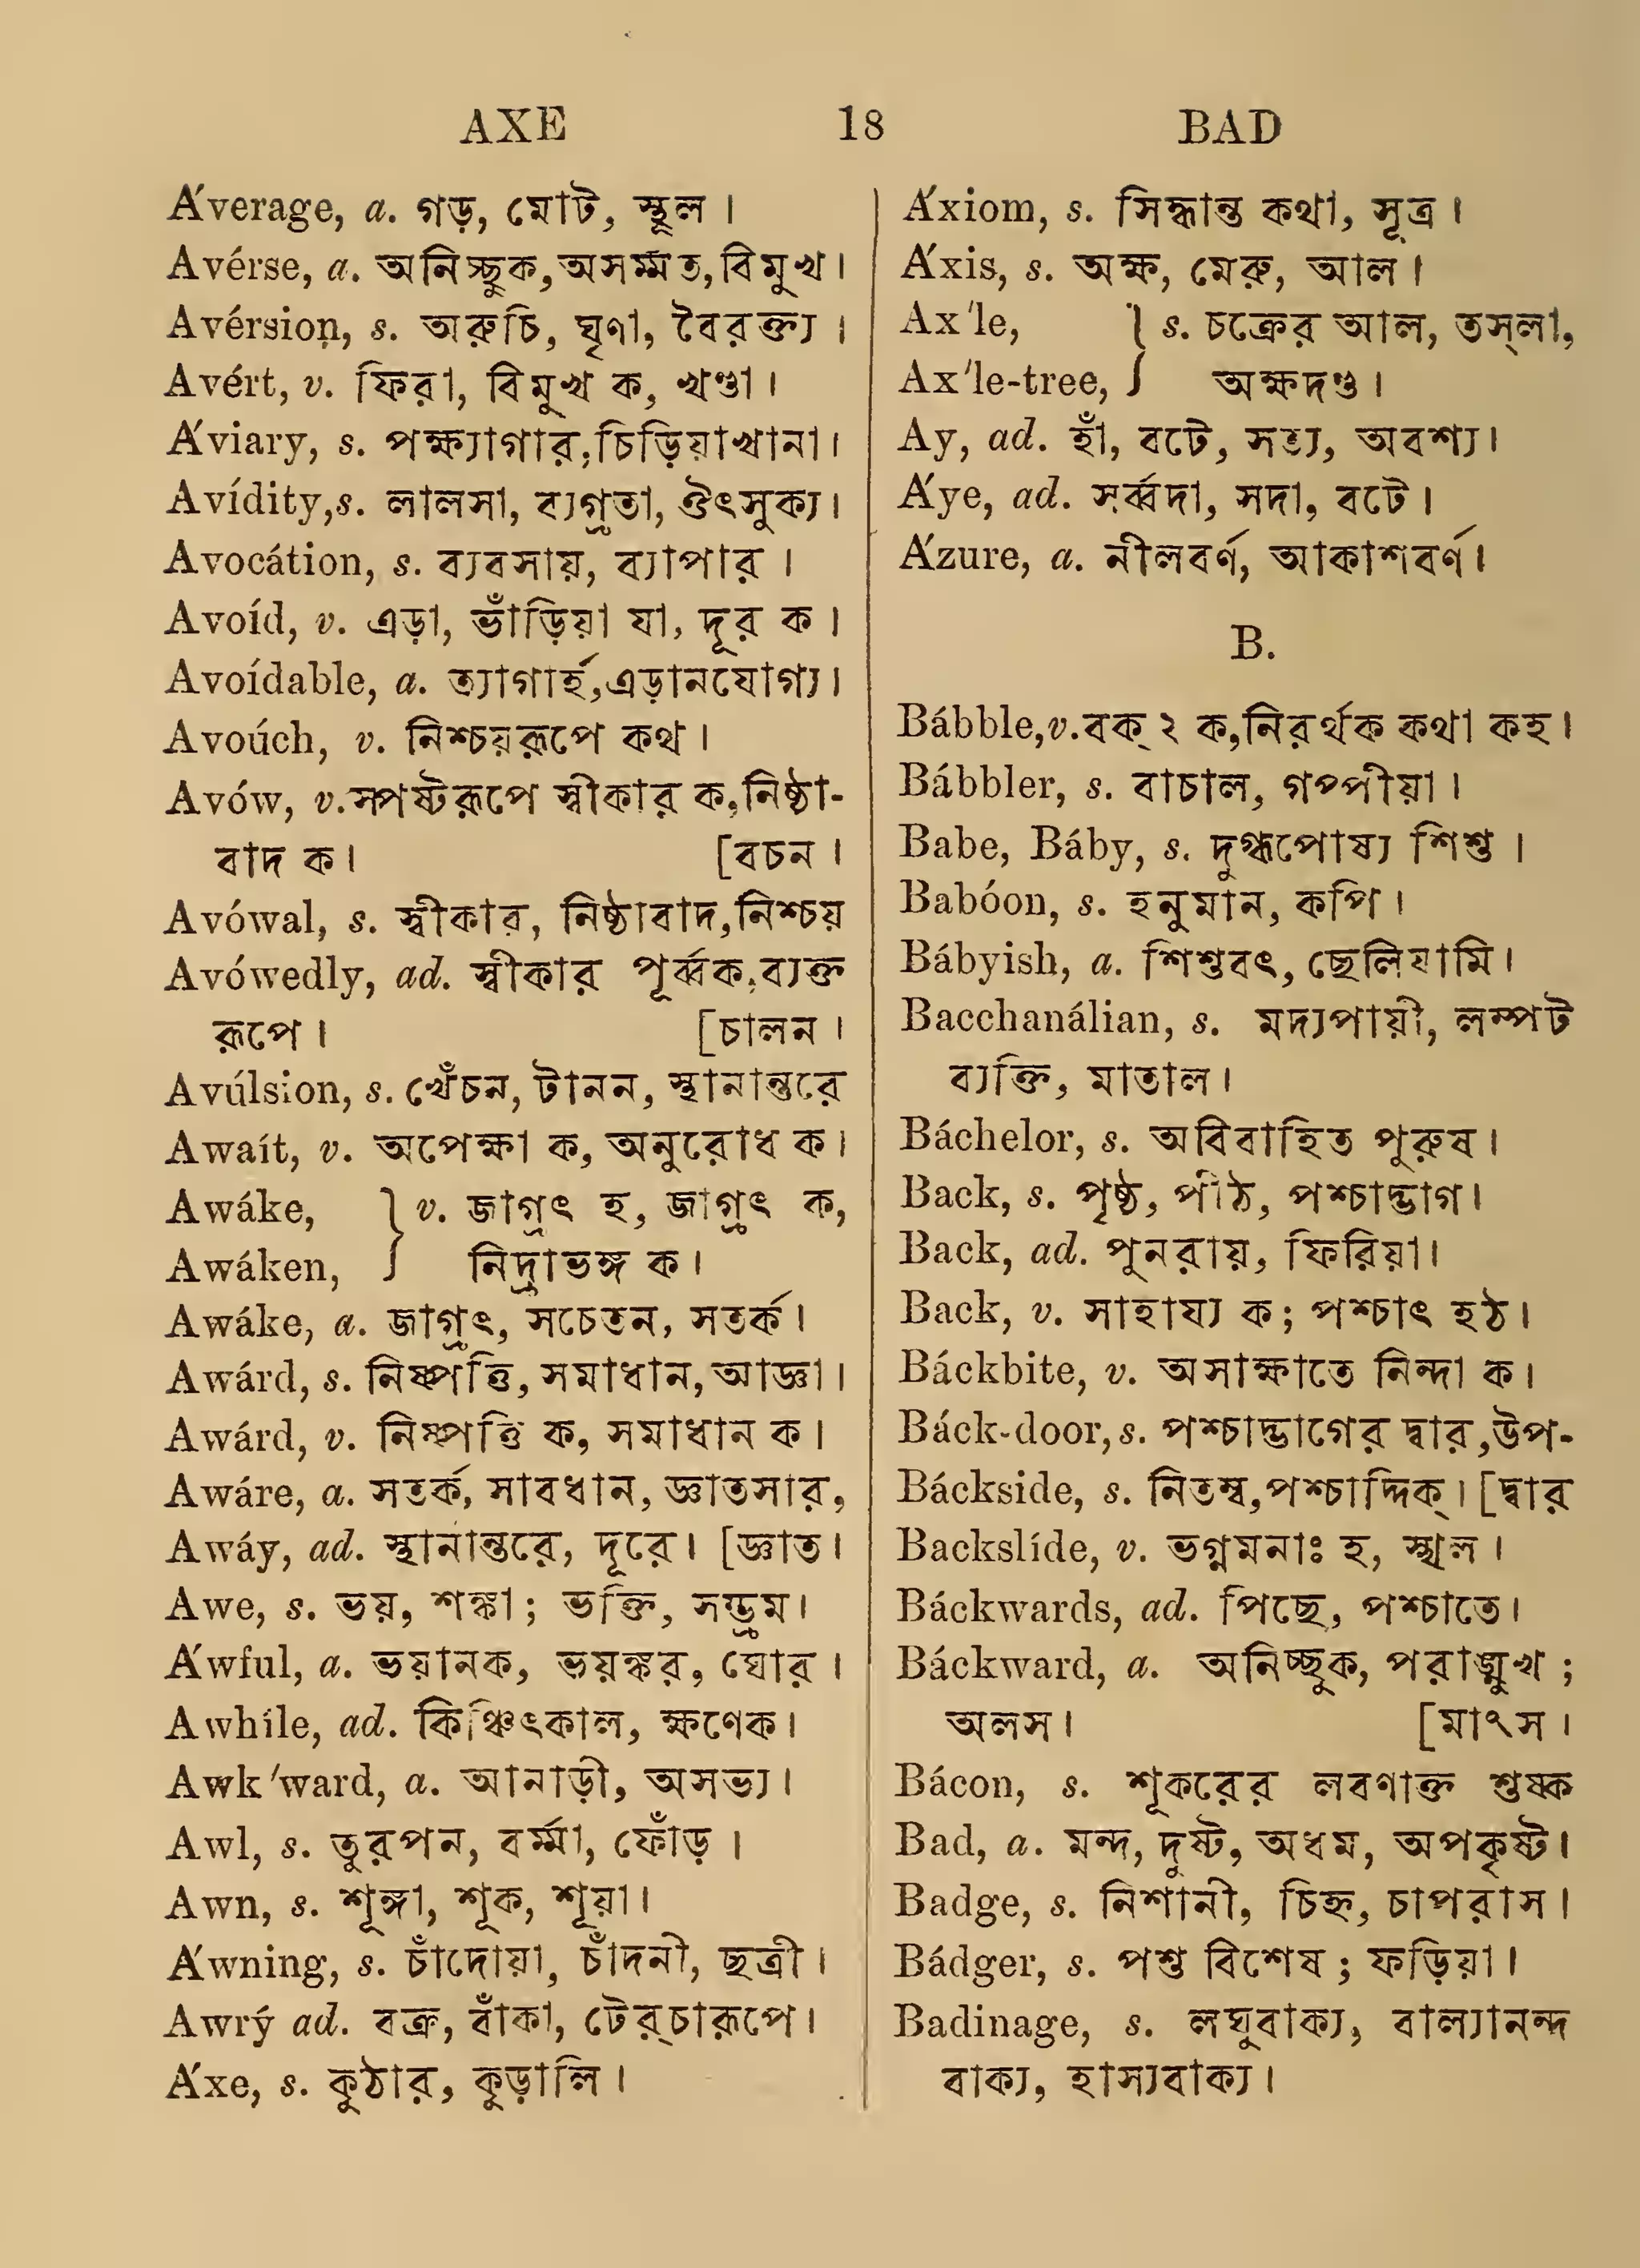 AXE 18 BAD
A´verage, a. গড়, মোট, স্থূল ।
Avérse, a. অনিচ্ছুক, অসম্মত, বিমুখ ।
Avérsion, s. অরুচি, ঘৃণা, বৈরক্ত্য ।
Avért, v. ফিরা, বিমুখ ক, খণ্ডা ।
A´viary, s. পক্ষ্যাগার, চিড়িয়াখানা ।
Avídity, s. লালসা, ব্যগ্রতা, ঔৎসুক্য ।
Avocátion, s. ব্যবসায়, ব্যাপার ।
Avoíd, v. এড়া, ভাঁড়িয়া যা, দূর ক ।
Avoídable, a. ত্যাগার্হ, এড়ানযোগ্য ।
Avoúch, v. নিশ্চয়রূপে কথ ।
Avów, v. স্পষ্টরূপে স্বীকার ক, নিষ্ঠা-
বাদ ক । [বচন ।
Avówal, s. স্বীকার, নিষ্ঠাবাদ, নিশ্চয়
Avówedly, ad. স্বীকার পূর্ব্বক, ব্যক্ত
রূপে । [চালন ।
Avúlsion, s. খেঁচন, টানন, স্থানান্তরে
Awaít, v. অপেক্ষা ক, অনুরোধ ক ।
Awáke, } v. জাগ্রৎ হ, জাগ্রৎ ক,
Awáken, } নিদ্রাভঙ্গ ক ।
Awáke, a. জাগ্রৎ, সচেতন, সতর্ক ।
Awárd, s. নিষ্পত্তি, সমাধান, আজ্ঞা ।
Awárd, v. নিষ্পত্তি ক, সমাধান ক ।
Awáre, a. সতর্ক, সাবধান, জ্ঞাতসার,
Awáy, ad. স্থানান্তরে, দূরে । [জ্ঞাত ।
Awe, s. ভয়, শঙ্কা ; ভক্তি, সম্ভ্রম ।
A´wful, a. ভয়ানক, ভয়ঙ্কর, ঘোর ।
Awhíle, ad. কিঞ্চিৎকাল, ক্ষণেক ।
Awk´ward, a. আনাড়ী, অসভ্য ।
Awl, s. তুরপন, বর্ম্মা, ফোঁড় ।
Awn, s. শূঙ্গা, শূক, শূয়া ।
A´wning, s. চাঁদোয়া, চাঁদনী, ছত্রী ।
Awrý ad. বক্র, বাঁকা, টের্চারূপে ।
A´xe, s. কুঠার, কুড়ালি ।
A´xiom, s. সিদ্ধান্ত কথা, সূত্র ।
A´xis, s. অক্ষ, মেরু, আল ।
Ax´le, } s. চক্রের আল, তস্লা,
Ax´le-tree, } অক্ষদণ্ড ।
Ay, ad. হাঁ, বটে, সত্য, অবশ্য ।
A´ye, ad. সর্ব্বদা, সদা, বটে ।
A´zure, a. নীলবর্ণ, আকাশবর্ণ ।
B.
Bábble, v. বক্ ২ ক, নিরর্থক কথা কহ ।
Bábbler, s. বাচাল, গপ্পীয়া ।
Babe, Báby, s. দুগ্ধপোষ্য শিশু ।
Babóon, s. হনুমান, কপি ।
Bábyish, a. শিশুবৎ, ছেলিয়ামি ।
Bacchanálian, s. মদ্যপায়ী, লম্পট
ব্যক্তি, মাতাল ।
Báchelor, s. অবিবাহিত পুরুষ ।
Back, s. পৃষ্ঠ, পীঠ, পশ্চাদ্ভাগ ।
Back, ad. পুনরায়, ফিরিয়া ।
Back, v. সাহায্য ক ; পশ্চাৎ হঠ ।
Báckbite, v. অসাক্ষাতে নিন্দা ক ।
Báck-door, s. পশ্চাদ্ভাগের দ্বার, উপ-
Báckside, s. নিতম্ব, পশ্চাদ্দিক্ । [দ্বার
Backslíde, v. ভগ্নমনাঃ হ, স্খল ।
Báckwards, ad. পিছে, পশ্চাতে ।
Báckward, a. অনিচ্ছুক, পরাঙ্মুখ ;
অলস । [মাংস ।
Bácon, s. শূকরের লবণাক্ত শুষ্ক
Bad, a. মন্দ, দুষ্ট, অধম, অপকৃষ্ট ।
Badge, s. নিশানী, চিহ্ন, চাপরাস ।
Bádger, s. পশু বিশেষ ; ফড়িয়া ।
Badinage, s. লঘুবাক্য, বাল্যানন্দ
বাক্য, হাস্যবাক্য ।